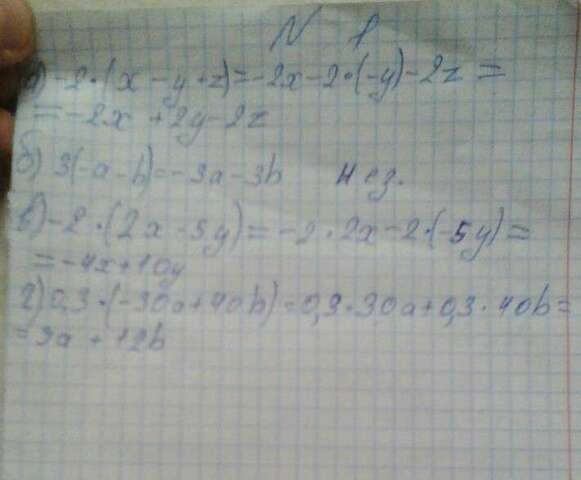 N 1
а) -2·(x - y + z) = -2x - 2·(-y) - 2z =
= -2x + 2y - 2z
б) 3(-a - b) = -3a - 3b
в) -2·(2x - 5y) = -2·2x - 2·(-5y) =
= -4x + 10y
г) 0,3·(-30a + 40b) = 0,3·30a + 0,3·40b =
= 9a + 12b